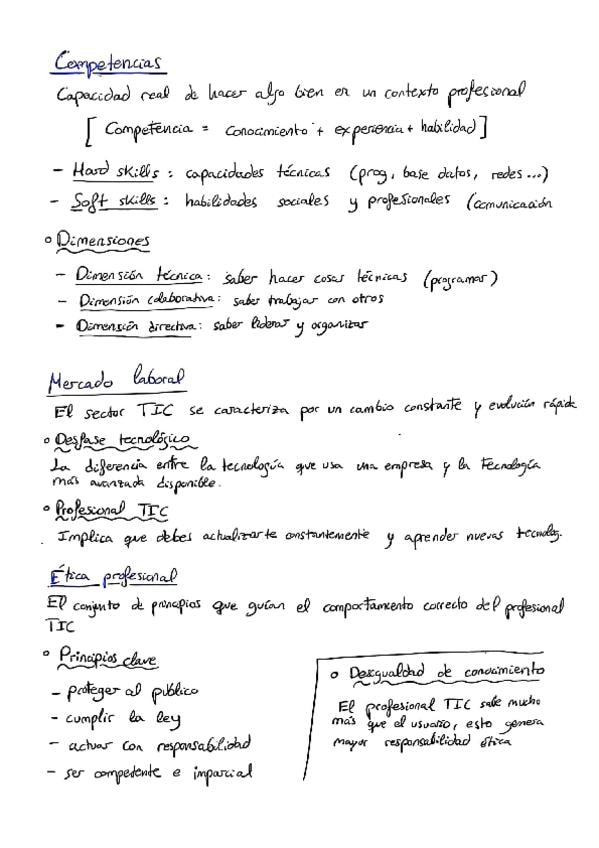 Competencias
Capacidad real de hacer algo bien en un contexto profesional
[ Competencia = conocimiento + experiencia + habilidad ]
- Hard skills : capacidades técnicas (prog, base datos, redes ...)
- Soft skills : habilidades sociales y profesionales (comunicación
Dimensiones
- Dimensión técnica : saber hacer cosas técnicas (programar)
- Dimensión colaborativa : saber trabajar con otros
- Dimensión directiva : saber liderar y organizar
Mercado laboral
El sector TIC se caracteriza por un cambio constante y evolución rápida
Desfase tecnológico
La diferencia entre la tecnología que usa una empresa y la tecnología
más avanzada disponible.
Profesional TIC
Implica que debes actualizarte constantemente y aprender nuevas tecnolog.
Ética profesional
El conjunto de principios que guían el comportamiento correcto del profesional
TIC
Principios clave
- proteger al público
- cumplir la ley
- actuar con responsabilidad
- ser competente e imparcial
Desigualdad de conocimiento
El profesional TIC sabe mucho
más que el usuario, esto genera
mayor responsabilidad ética